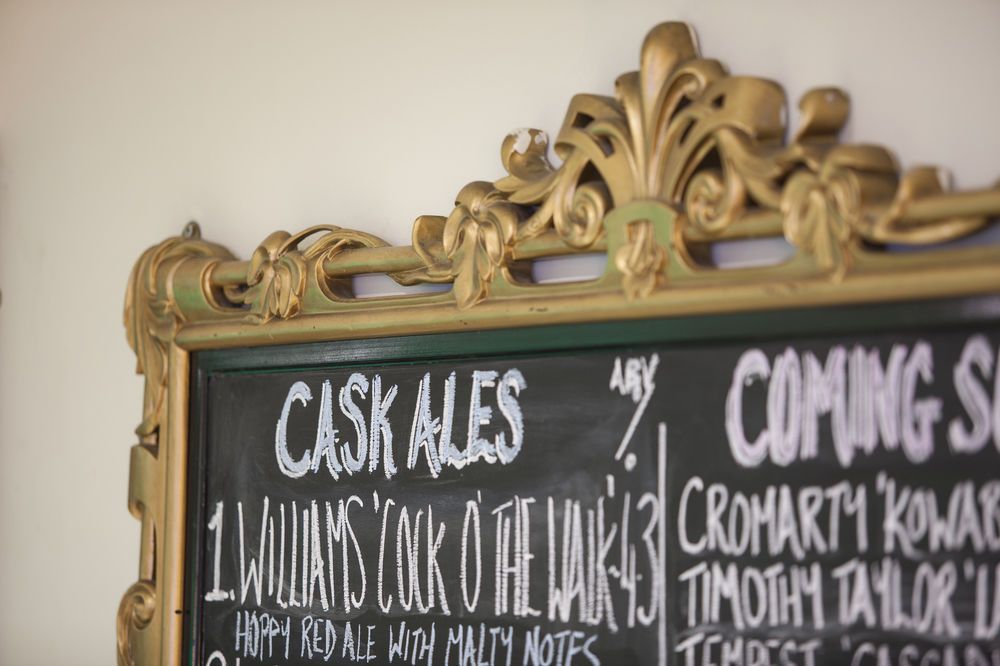 CASK ALES
ABV %
1. WILLIAMS 'COCK O' THE WALK' 4.3
HOPPY RED ALE WITH MALTY NOTES
COMING
CROMARTY 'KOWAB
TIMOTHY TAYLOR
TEMPEST 'CASCAD